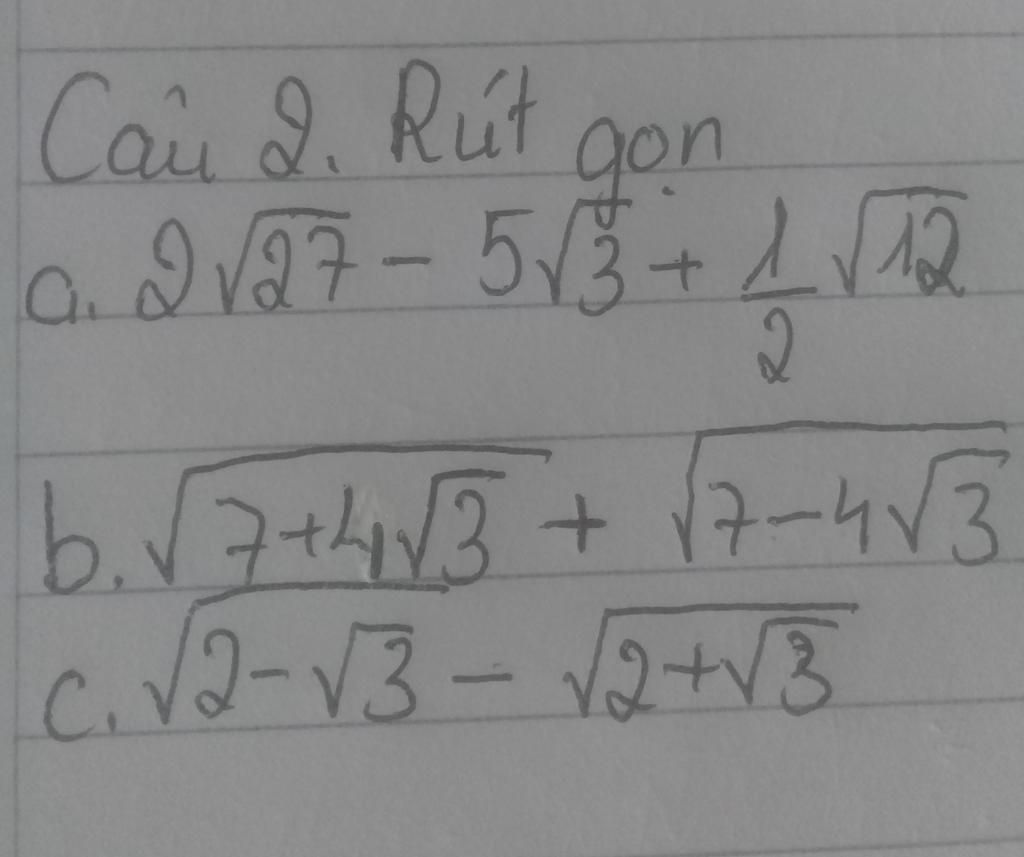 Câu 2. Rút gọn
a. 2√27 - 5√3 + 1/2 √12
b. √(7+4√3) + √(7-4√3)
c. √(2-√3) - √(2+√3)